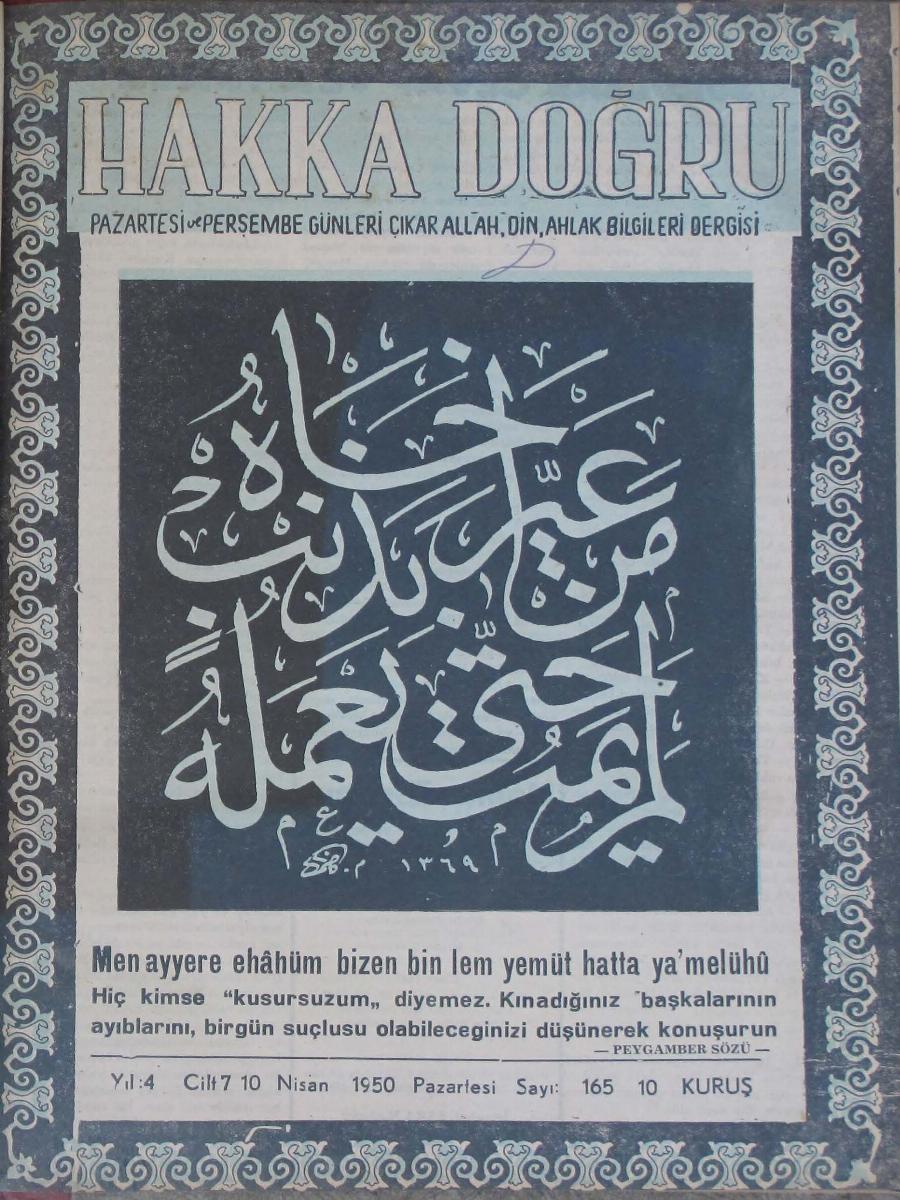 HAKKA DOĞRU
PAZARTESİ ve PERŞEMBE GÜNLERİ ÇIKAR ALLAH, DİN, AHLAK BİLGİLERİ DERGİSİ
من عيّر اخاه بذنبٍ
لم يمت حتّى يعمله
١٣٦٩
Men ayyere ehâhüm bizen bin lem yemüt hatta ya'melühû
Hiç kimse "kusursuzum„ diyemez. Kınadığınız başkalarının
ayıblarını, birgün suçlusu olabileceginizi düşünerek konuşurun
— PEYGAMBER SÖZÜ —
Yıl:4 Cilt 7 10 Nisan 1950 Pazartesi Sayı: 165 10 KURUŞ